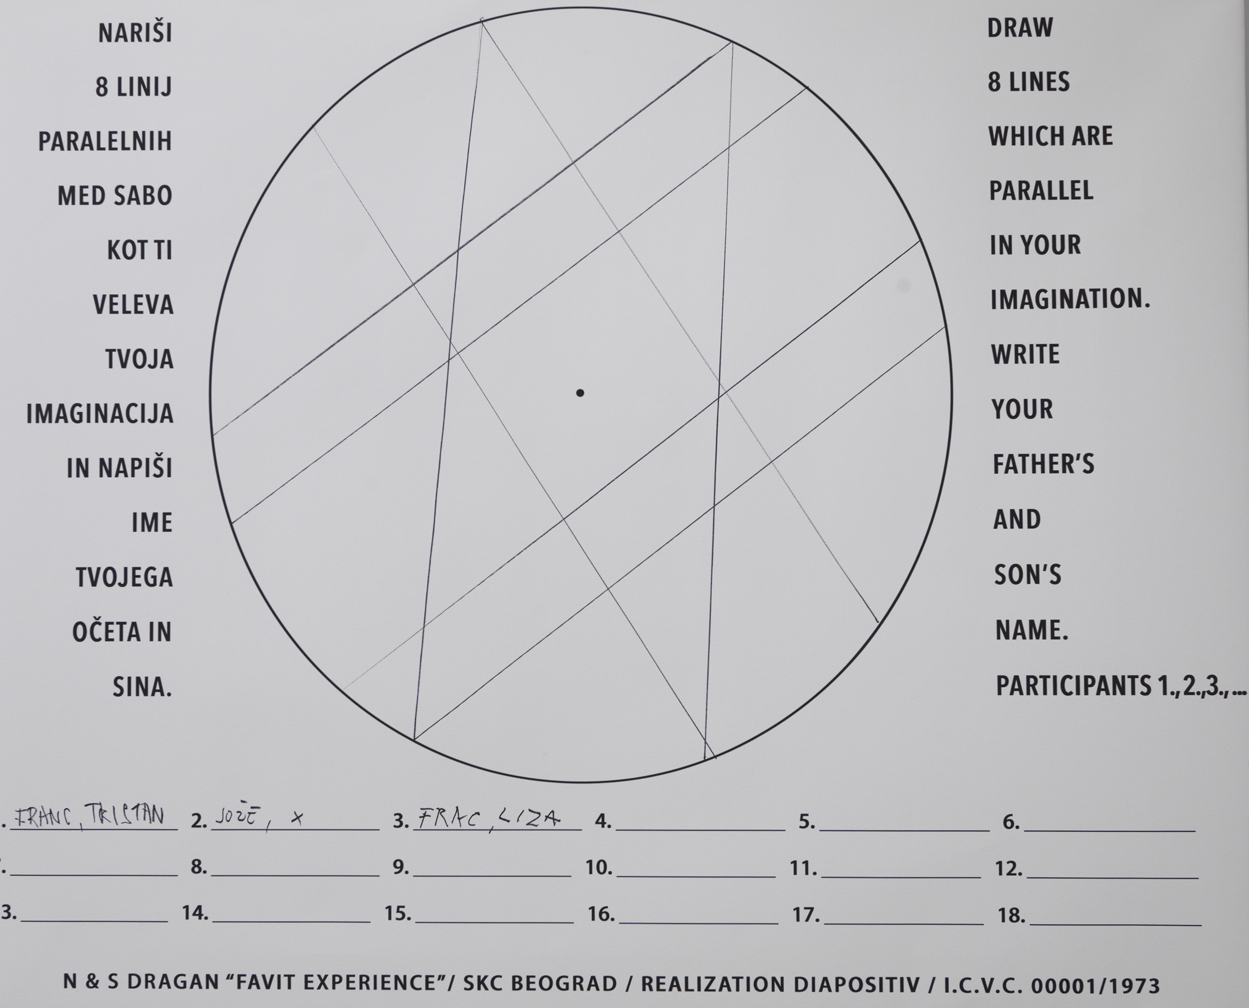 NARIŠI
8 LINIJ
PARALELNIH
MED SABO
KOT TI
VELEVA
TVOJA
IMAGINACIJA
IN NAPIŠI
IME
TVOJEGA
OČETA IN
SINA.
DRAW
8 LINES
WHICH ARE
PARALLEL
IN YOUR
IMAGINATION.
WRITE
YOUR
FATHER'S
AND
SON'S
NAME.
PARTICIPANTS 1.,2.,3.,...
. FRANC, TRISTAN 2. JOŽE, X 3. FRAC, LIZA 4. 5. 6.
. 8. 9. 10. 11. 12.
3. 14. 15. 16. 17. 18.
N & S DRAGAN “FAVIT EXPERIENCE”/ SKC BEOGRAD / REALIZATION DIAPOSITIV / I.C.V.C. 00001/1973